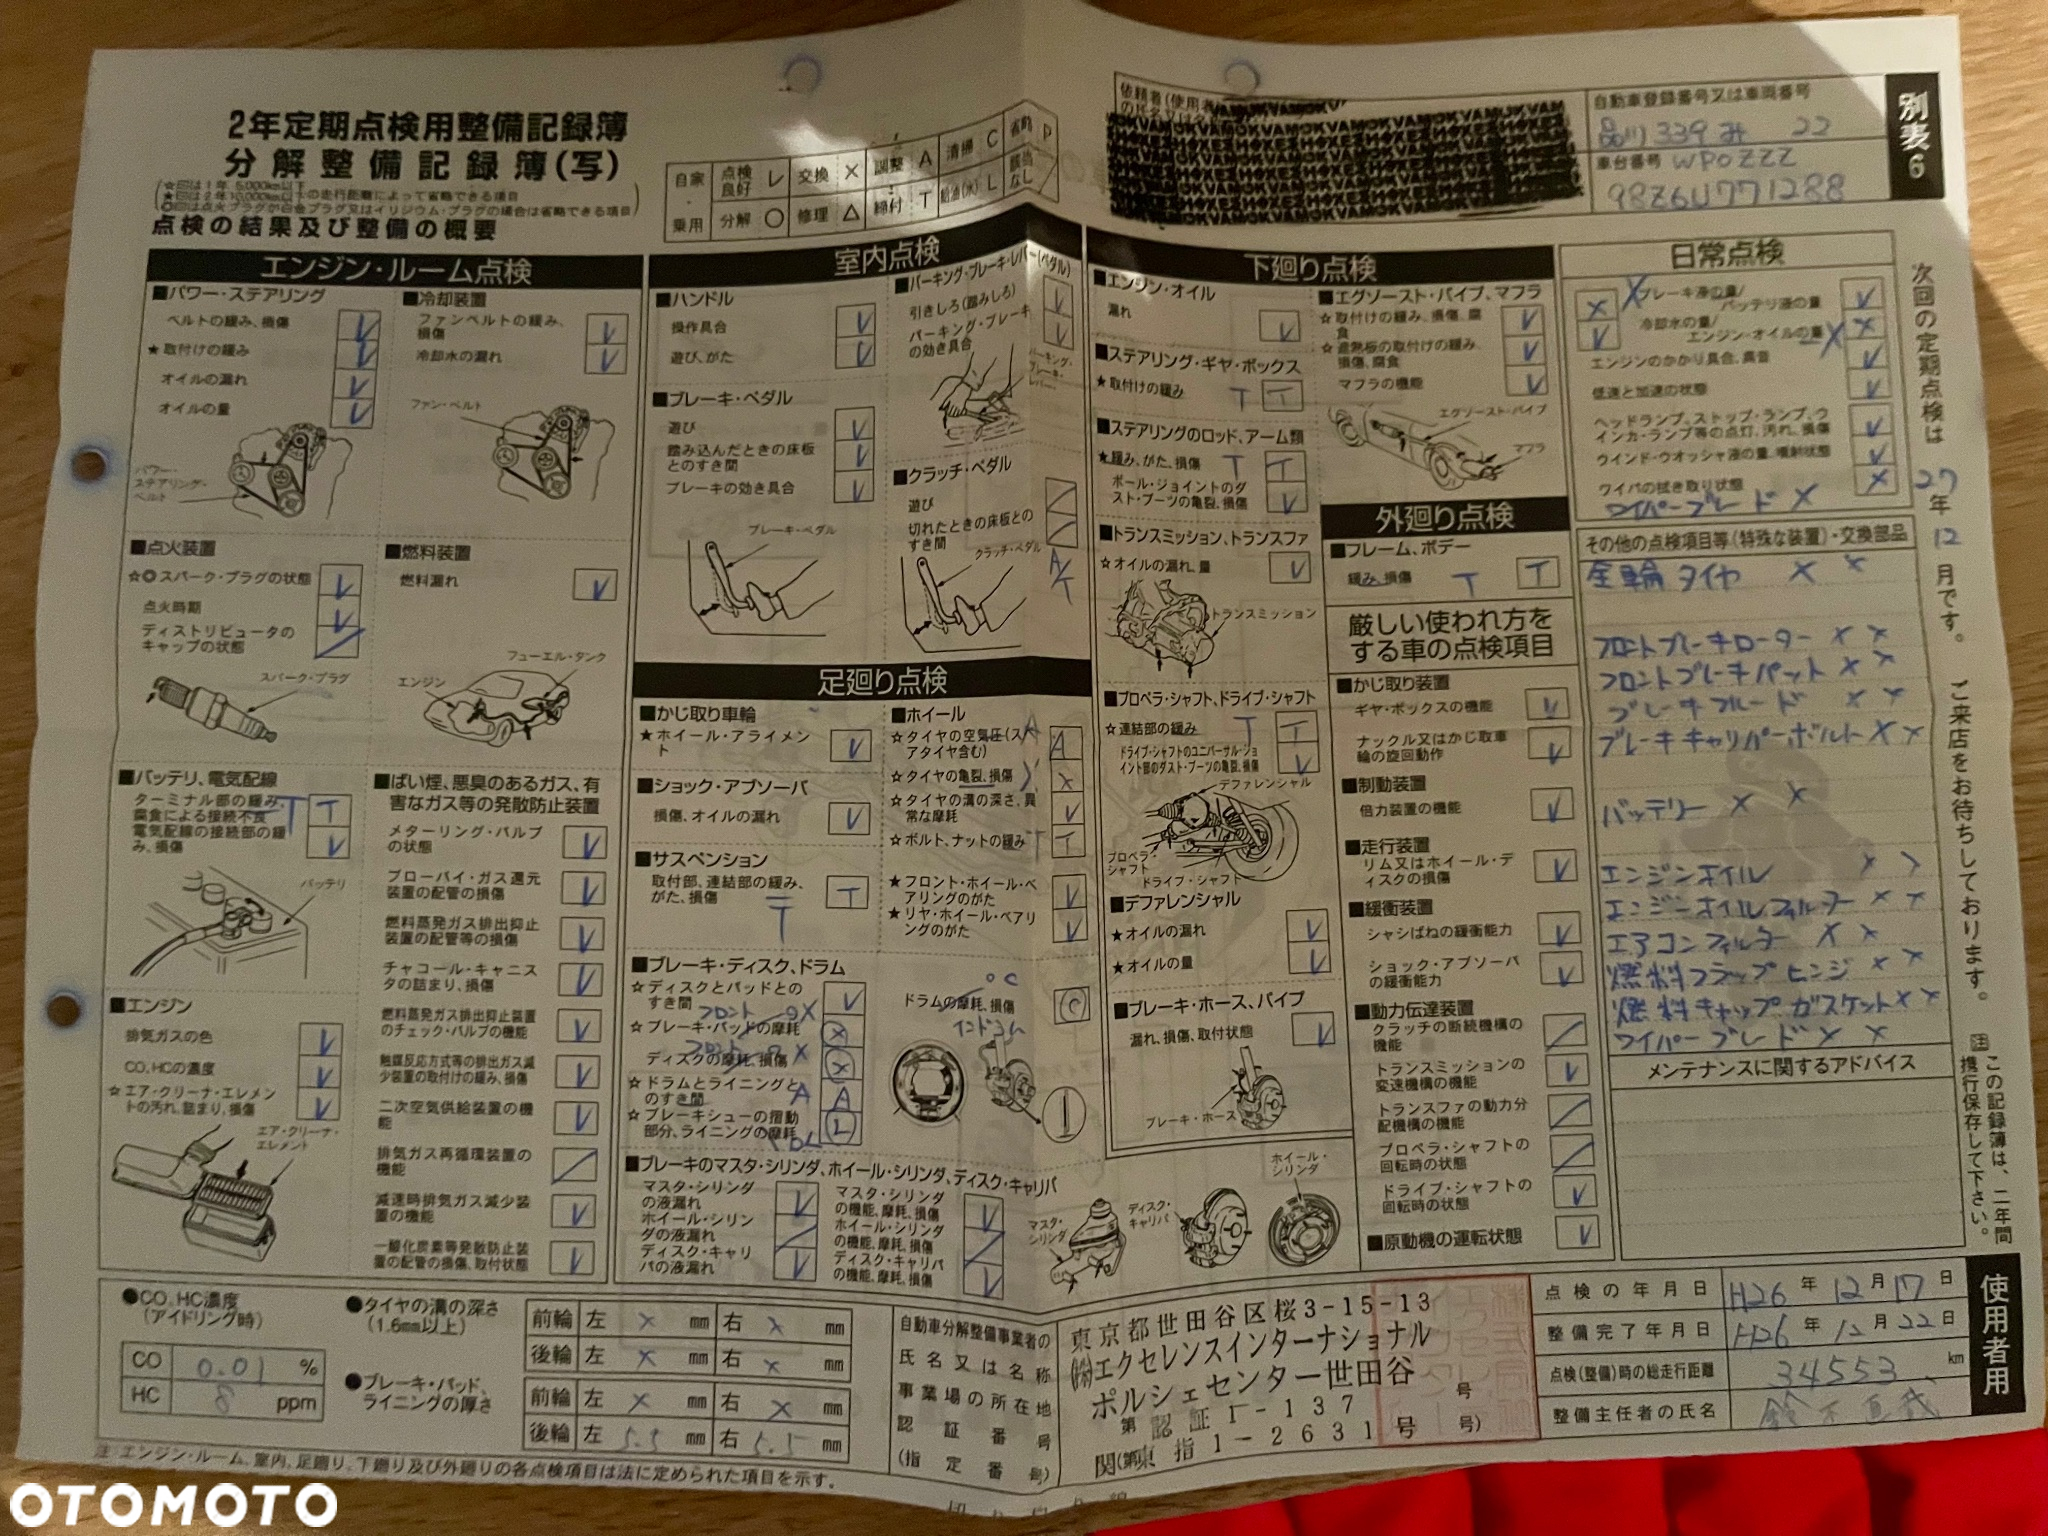 2年定期点検用整備記録簿
分解整備記録簿(写)
点検の結果及び整備の概要
自家・乗用
点検良好 レ 交換 × 調整 A 清掃 C 省略 P
分解 ○ 修理 △ 締付 T 給油(水) L 該当なし
自動車登録番号又は車両番号
品川 339 み 22
車台番号 WP0ZZZ
98Z6U771288
別表6
エンジン・ルーム点検
■パワー・ステアリング
ベルトの緩み、損傷
★取付けの緩み
オイルの漏れ
オイルの量
パワー・ステアリング・ベルト
■冷却装置
ファンベルトの緩み、損傷
冷却水の漏れ
ファン・ベルト
■点火装置
☆◎スパーク・プラグの状態
点火時期
ディストリビュータのキャップの状態
スパーク・プラグ
■燃料装置
燃料漏れ
フューエル・タンク
エンジン
■バッテリ、電気配線
ターミナル部の緩み、腐食による接続不良 T T
電気配線の接続部の緩み、損傷
バッテリ
■エンジン
排気ガスの色
CO、HCの濃度
☆エア・クリーナ・エレメントの汚れ、詰まり、損傷
エア・クリーナ・エレメント
■ばい煙、悪臭のあるガス、有害なガス等の発散防止装置
メターリング・バルブの状態
ブローバイ・ガス還元装置の配管の損傷
燃料蒸発ガス排出抑止装置の配管等の損傷
チャコール・キャニスタの詰まり、損傷
燃料蒸発ガス排出抑止装置のチェック・バルブの機能
触媒反応方式等の排出ガス減少装置の取付けの緩み、損傷
二次空気供給装置の機能
排気ガス再循環装置の機能
減速時排気ガス減少装置の機能
一酸化炭素等発散防止装置の配管の損傷、取付状態
室内点検
■ハンドル
操作具合
遊び、がた
■ブレーキ・ペダル
遊び
踏み込んだときの床板とのすき間
ブレーキの効き具合
ブレーキ・ペダル
■パーキング・ブレーキ・レバー(ペダル)
引きしろ(踏みしろ)
パーキング・ブレーキの効き具合
■クラッチ・ペダル
遊び
切れたときの床板とのすき間
クラッチ・ペダル
A/T
足廻り点検
■かじ取り車輪
★ホイール・アライメント
■ショック・アブソーバ
損傷、オイルの漏れ
■サスペンション
取付部、連結部の緩み、がた、損傷 T
T
■ホイール
☆タイヤの空気圧(スペアタイヤ含む) A
☆タイヤの亀裂、損傷 ×
☆タイヤの溝の深さ、異常な摩耗
☆ボルト、ナットの緩み T T
★フロント・ホイール・ベアリングのがた
★リヤ・ホイール・ベアリングのがた
■ブレーキ・ディスク、ドラム
☆ディスクとパッドとのすき間
☆ブレーキ・パッドの摩耗
ディスクの摩耗、損傷
☆ドラムとライニングとのすき間 A A
☆ブレーキシューの摺動部分、ライニングの摩耗
ドラムの摩耗、損傷
■ブレーキのマスタ・シリンダ、ホイール・シリンダ、ディスク・キャリパ
マスタ・シリンダの液漏れ
ホイール・シリンダの液漏れ
ディスク・キャリパの液漏れ
マスタ・シリンダの機能、摩耗、損傷
ホイール・シリンダの機能、摩耗、損傷
ディスク・キャリパの機能、摩耗、損傷
マスタ・シリンダ
ディスク・キャリパ
ホイール・シリンダ
下廻り点検
■エンジン・オイル
漏れ
■ステアリング・ギヤ・ボックス
★取付けの緩み T T
■ステアリングのロッド、アーム類
★緩み、がた、損傷 T T
ボール・ジョイントのダスト・ブーツの亀裂、損傷
■トランスミッション、トランスファ
☆オイルの漏れ、量
トランスミッション
■プロペラ・シャフト、ドライブ・シャフト
☆連結部の緩み T T
ドライブ・シャフトのユニバーサル・ジョイント部のダスト・ブーツの亀裂、損傷
デファレンシャル
プロペラ・シャフト
ドライブ・シャフト
■デファレンシャル
★オイルの漏れ
★オイルの量
■ブレーキ・ホース、パイプ
漏れ、損傷、取付状態
ブレーキ・ホース
■エグゾースト・パイプ、マフラ
☆取付けの緩み、損傷、腐食
☆遮熱板の取付けの緩み、損傷、腐食
マフラの機能
エグゾースト・パイプ
マフラ
外廻り点検
■フレーム、ボデー
緩み、損傷 T T
厳しい使われ方をする車の点検項目
■かじ取り装置
ギヤ・ボックスの機能
ナックル又はかじ取車輪の旋回動作
■制動装置
倍力装置の機能
■走行装置
リム又はホイール・ディスクの損傷
■緩衝装置
シャシばねの緩衝能力
ショック・アブソーバの緩衝能力
■動力伝達装置
クラッチの断続機構の機能
トランスミッションの変速機構の機能
トランスファの動力分配機構の機能
プロペラ・シャフトの回転時の状態
ドライブ・シャフトの回転時の状態
■原動機の運転状態
日常点検
ブレーキ液の量/バッテリ液の量
冷却水の量/エンジン・オイルの量
エンジンのかかり具合、異音
低速と加速の状態
ヘッドランプ、ストップ・ランプ、ウインカ・ランプ等の点灯、汚れ、損傷
ウインド・ウオッシャ液の量、噴射状態
ワイパの拭き取り状態
ワイパーブレード ×
その他の点検項目等(特殊な装置)・交換部品
全輪タイヤ × ×
フロントブレーキローター × ×
フロントブレーキパット × ×
ブレーキフルード × ×
ブレーキキャリパーボルト × ×
バッテリー × ×
エンジンオイル × ×
エンジンオイルフィルター × ×
エアコンフィルター × ×
燃料フラップヒンジ × ×
燃料キャップガスケット × ×
ワイパーブレード × ×
メンテナンスに関するアドバイス
次回の定期点検は 27年 12月です。 ご来店をお待ちしております。
注 この記録簿は、二年間携行保存して下さい。
使用者用
●CO、HC濃度(アイドリング時)
CO 0.01 %
HC 8 ppm
●タイヤの溝の深さ(1.6mm以上)
前輪 左 × mm 右 × mm
後輪 左 × mm 右 × mm
●ブレーキ・パッド、ライニングの厚さ
前輪 左 × mm 右 × mm
後輪 左 5.5 mm 右 5.5 mm
自動車分解整備事業者の氏名又は名称
事業場の所在地
認証番号
(指定番号)
東京都世田谷区桜3-15-13
㈱エクセレンスインターナショナル
ポルシェセンター世田谷
第 認証 1-137 号
関(第東指1-2631号 号)
点検の年月日 H26年 12月 17日
整備完了年月日 H26年 12月 22日
点検(整備)時の総走行距離 34553 km
整備主任者の氏名
注:エンジン・ルーム、室内、足廻り、下廻り及び外廻りの各点検項目は法に定められた項目を示す。
OTOMOTO